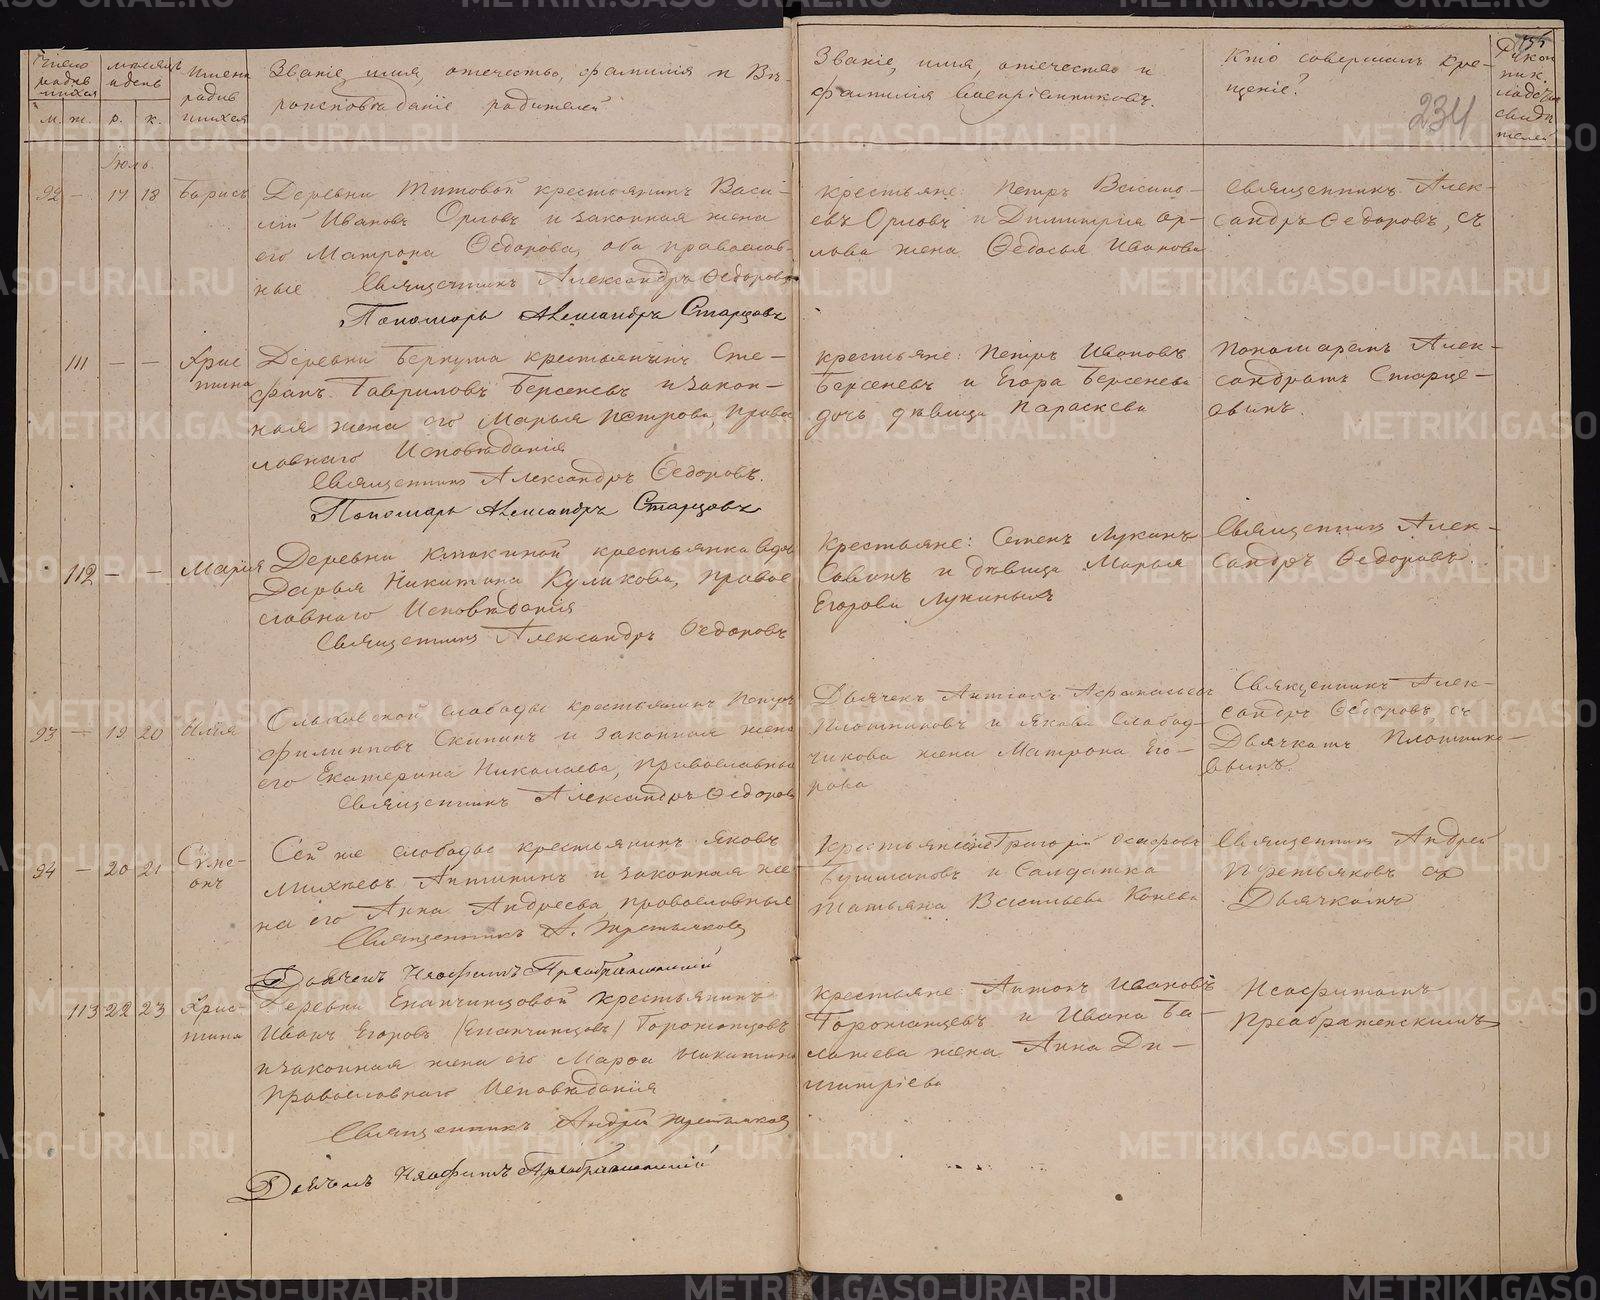 Число родившихся
Мѣсяцъ и день
Имена родившихся
Званіе, имя, отчество, фамилія и Вѣ-
роисповѣданіе родителей
м. ж. р. к.
Званіе, имя, отчество и
фамилія Воспріемниковъ.
Кто совершалъ кре-
щеніе?
234
Июль.
92 — 17 18 Борисъ
Деревни Титовой крестьянинъ Васи-
лій Ивановъ Орловъ и законная жена
его Матрона Ѳедорова, оба православ-
ные
Священникъ Александръ Ѳедоровъ
Пономарь Александръ Старцовъ
Крестьяне: Петръ Василь-
евъ Орловъ и Димитрія Ор-
лова жена Ѳедосья Иванова
Священникъ Алек-
сандръ Ѳедоровъ, съ
111 — — Христина
Деревни Беркута крестьянинъ Сте-
фанъ Гавриловъ Берсеневъ и закон-
ная жена его Марья Петрова, право-
славнаго Исповѣданія
Священникъ Александръ Ѳедоровъ.
Пономарь Александръ Старцовъ
Крестьяне: Петръ Ивановъ
Берсеневъ и Егора Берсенева
дочь дѣвица Параскева
Пономаремъ Алек-
сандромъ Старце-
овымъ.
112 — — Марія
Деревни крестьянка вдова
Дарья Никитина Куликова, право-
славнаго Исповѣданія
Священникъ Александръ Ѳедоровъ
Крестьяне: Семенъ Лукинъ
Савинъ и дѣвица Марья
Егорова Лукиныхъ
Священникъ Алек-
сандръ Ѳедоровъ.
93 — 19 20 Илія
Ольховской слободы крестьянинъ Петръ
Филипповъ Скипинъ и законная жена
его Екатерина Николаева, православные
Священникъ Александръ Ѳедоровъ
Дьячекъ Плотниковъ и Якова Слобод-
чикова жена Матрона Его-
рова
Священникъ Алек-
сандръ Ѳедоровъ, съ
Дьячкомъ Плотнико-
вымъ.
94 — 20 21 Сѵме-
онъ
Сей же слободы крестьянинъ Яковъ
Михѣевъ и законная же-
на его Анна Андреева, православные
Священникъ А. Третьяковъ
Дьячекъ Неофитъ Преображенскій
Крестьяне Григорій Осиповъ
Бушмановъ и Солдатка
Татьяна Васильева Конева
Священникъ Андрей
Третьяковъ съ
Дьячкомъ
113 22 23 Хрис-
тина
Деревни Епанчинцовой крестьянинъ
Иванъ Егоровъ (Епанчинцовъ)
и законная жена его Марѳа Никитина
Православнаго Исповѣданія
Священникъ Андрей Третьяковъ
Дьячекъ Неофитъ Преображенскій
Крестьяне: Антонъ Ивановъ
и Ивана Ба-
лашева жена Анна Ди-
митріева
Неофитомъ
Преображенскимъ
METRIKI.GASO-URAL.RU